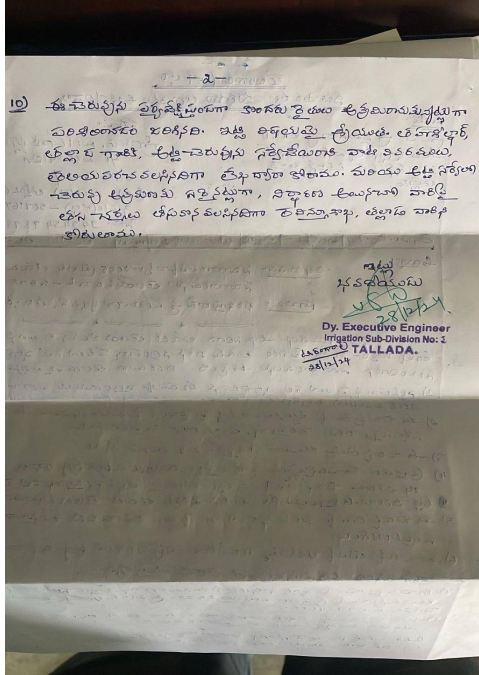 - 2 -
10) ఈ చెరువును పర్యవేక్షిస్తుండగా కొందరు రైతులు ఆక్రమించుకున్నట్లుగా
పరిశీలించడం జరిగినది. ఇట్టి విషయమై శ్రీయుత తహశీల్దార్,
తల్లాడ గారికి, అట్టి చెరువును సర్వే చేయించి వాటి వివరములు,
తెలియపరచవలసినదిగా లేఖ ద్వారా కోరాము. మరియు అట్టి సర్వేలో
చెరువు ఆక్రమణకు గురైనట్లుగా, నిర్ధారణ అయినచో వారిపై
తగు చర్యలు తీసుకొనవలసినదిగా రెవిన్యూశాఖ, తల్లాడ వారిని
కోరుతాము.
ఇట్లు
భవదీయుడు
28/12/24
Dy. Executive Engineer
Irrigation Sub-Division No: 2
TALLADA.
28/12/24